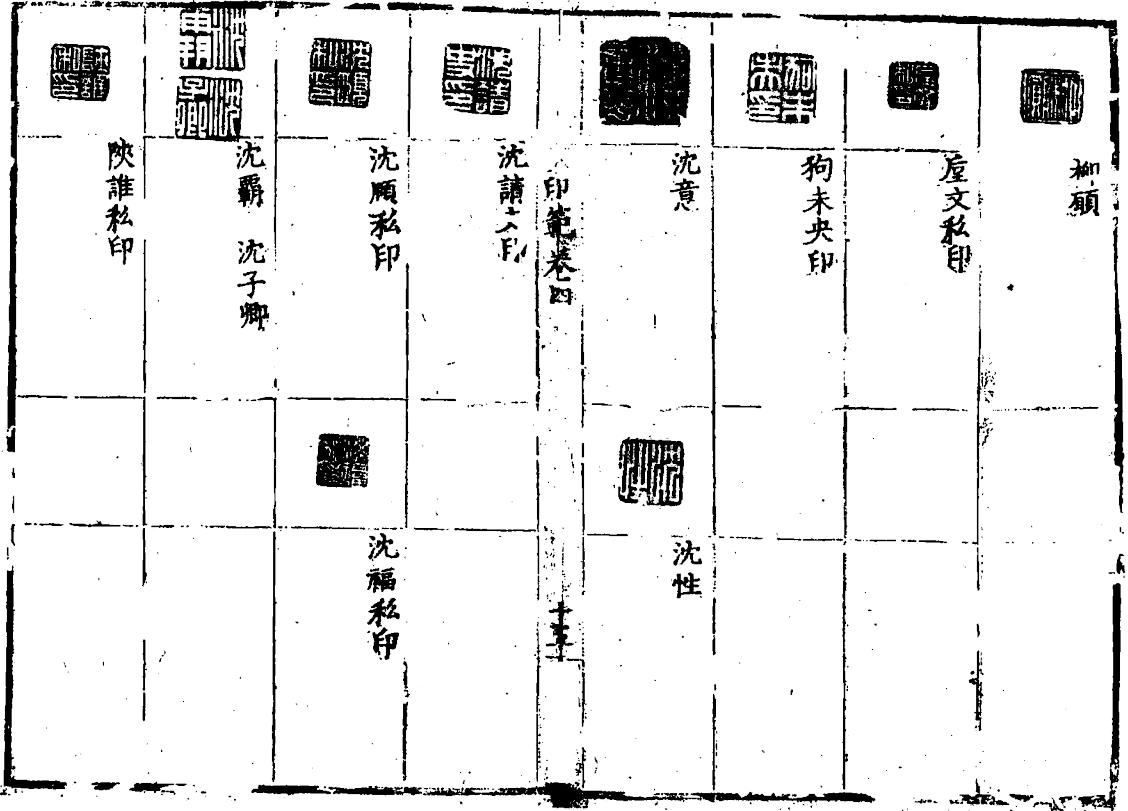 柳願
室文私印
狗未央印
沈意
沈性
印範卷四
沈請之印
沈願私印
沈福私印
沈霸 沈子卿
陝誰私印